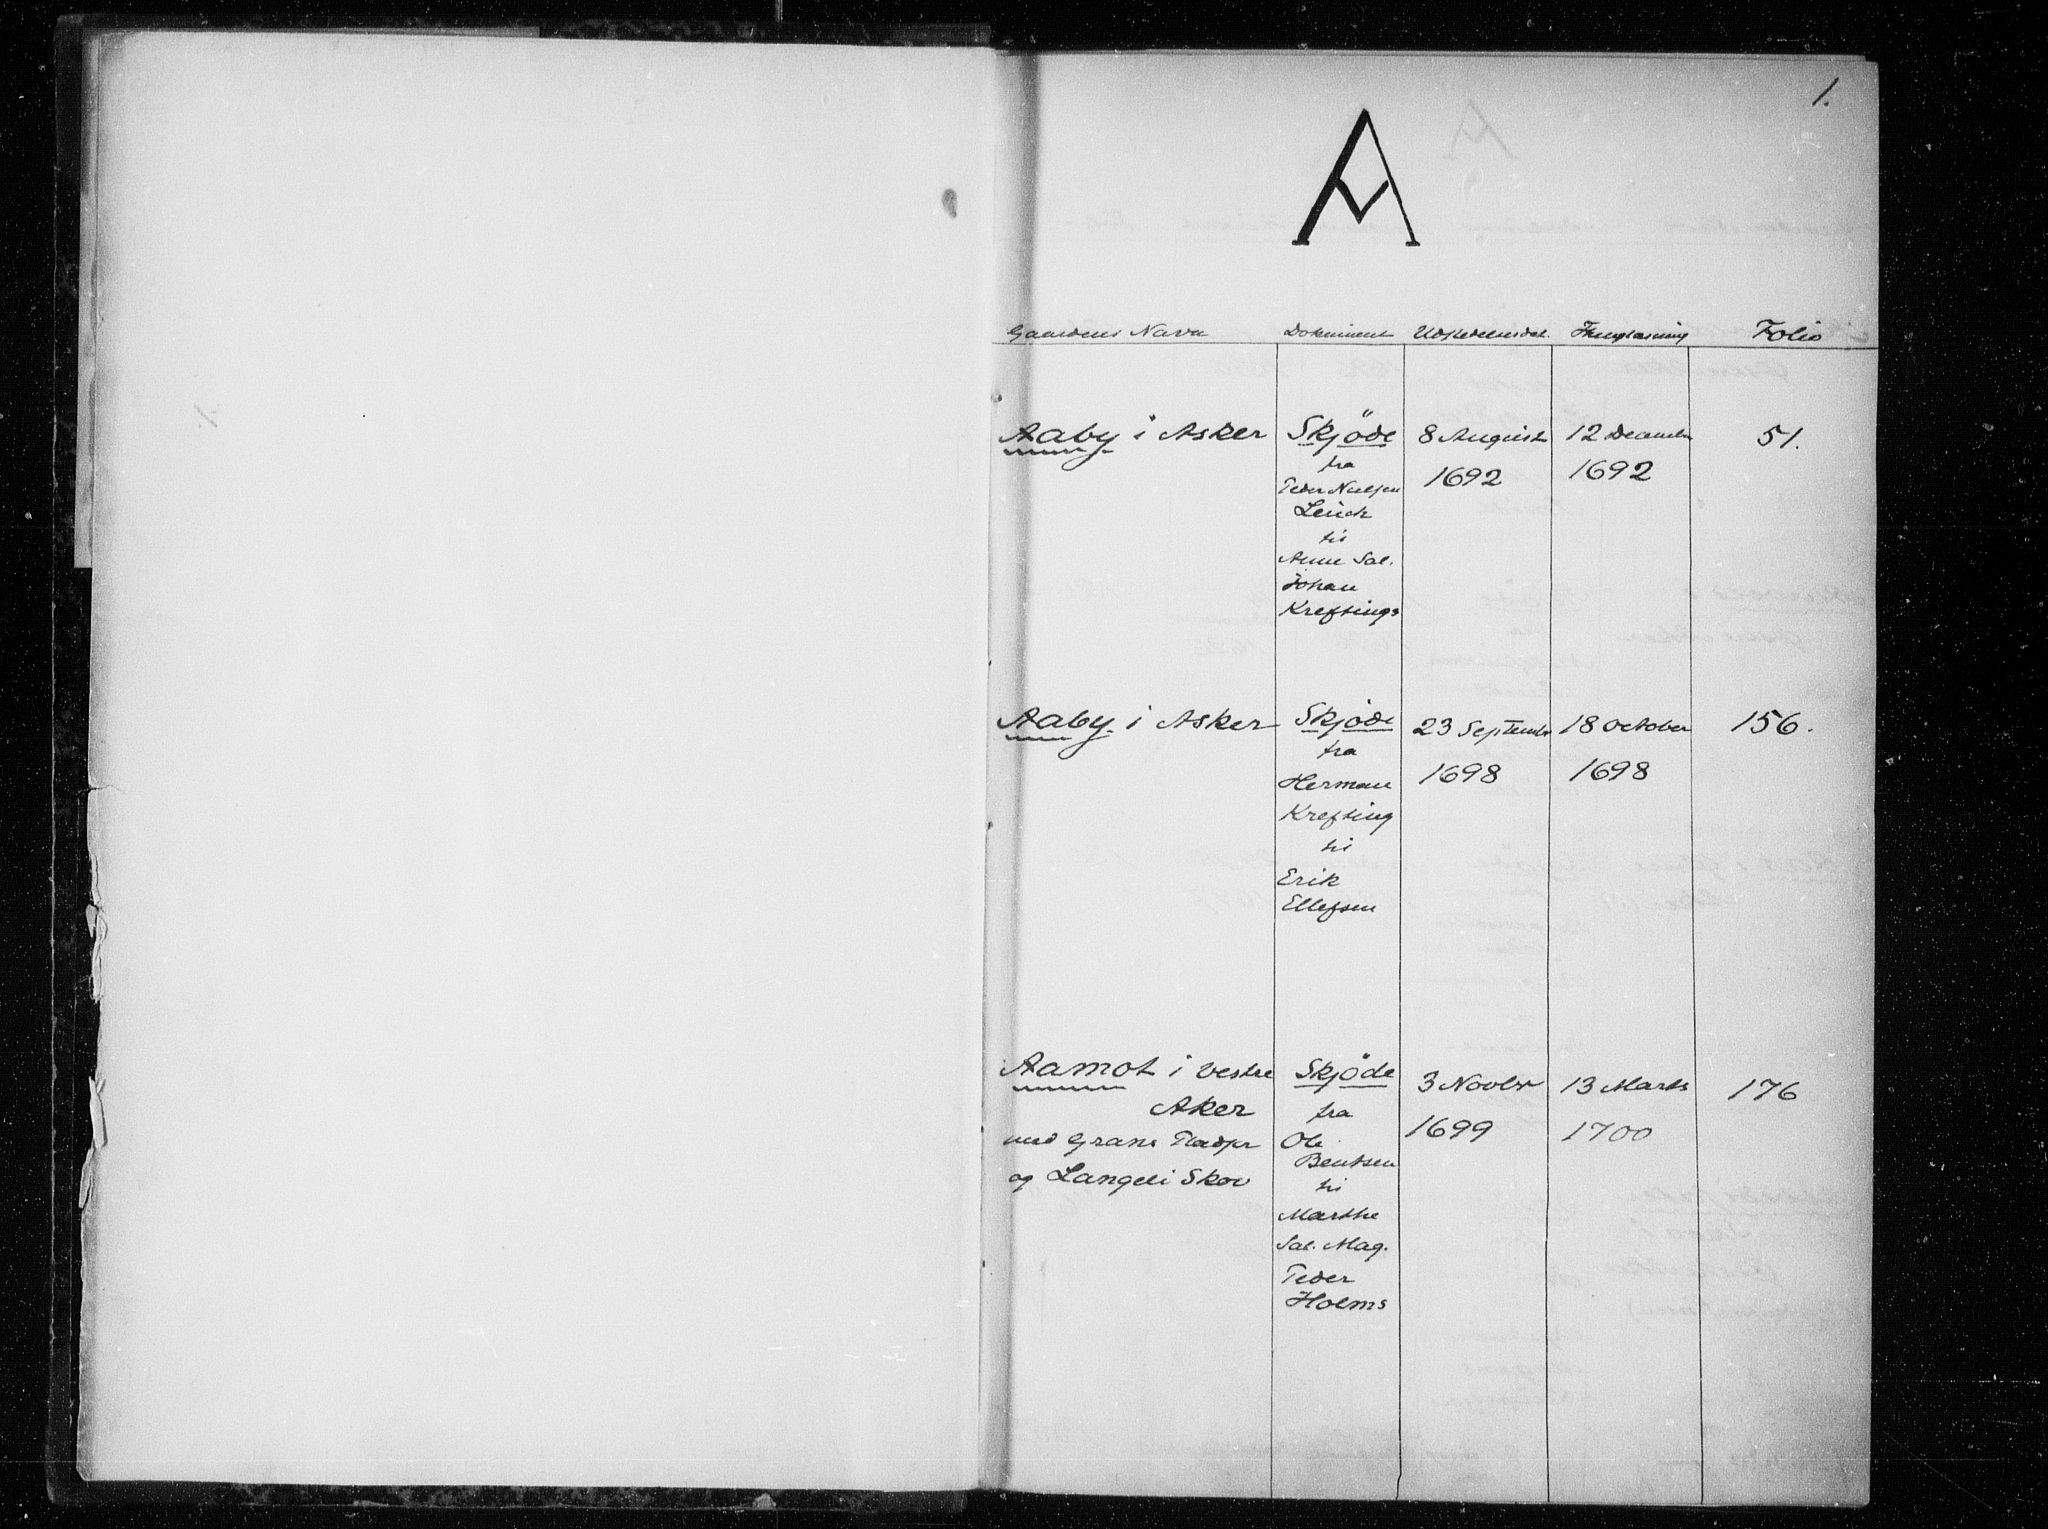 1.
A
Gaardens Navn Dokument Udstedelsesdat. Thinglæsning Folio
Aaby i Asker Skjöde 8 August 12 Decembr 51.
fra 1692 1692
Peder Nielsen
Leuch
til
Anne Sal.
Johan
Kreftings
Aaby i Asker Skjöde 23 Septembr 18 October 156.
fra 1698 1698
Herman
Krefting
til
Erik
Ellefsen
Aamot i vestre Skjöde 3 Novbr 13 Marts 176
Aker fra 1699 1700
med Grans Pladser Ole
Bentsen
og Langeli Skov til
Marthe
Sal. Mag.
Peder
Holms